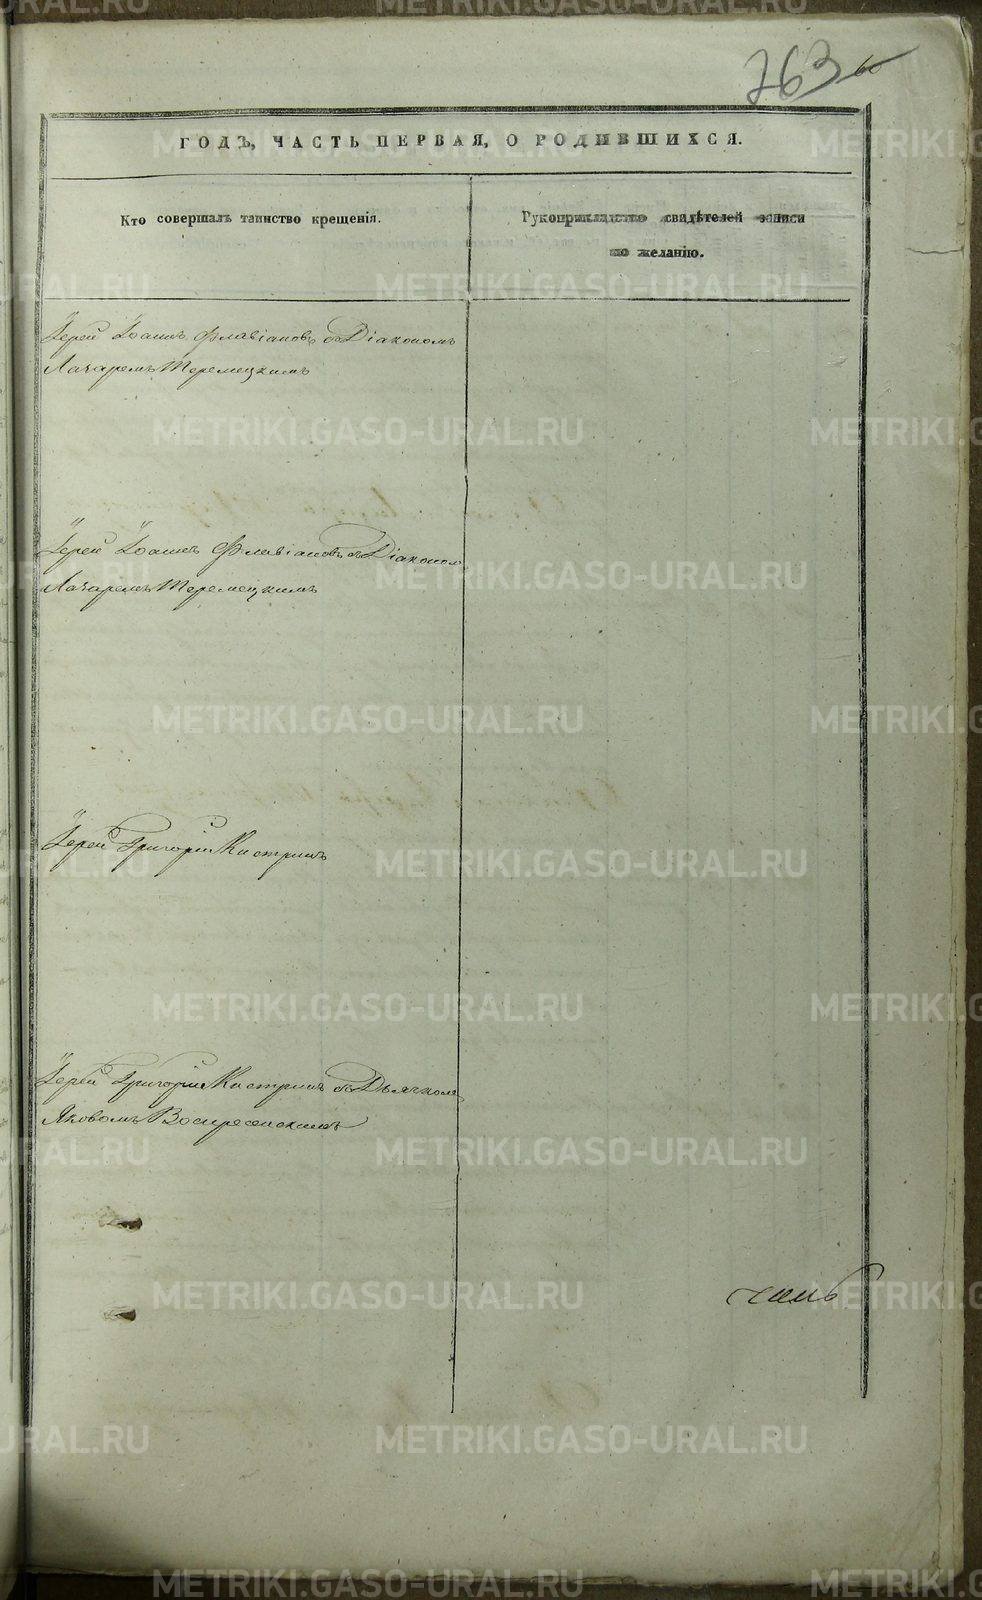 763
60
ГОДЪ, ЧАСТЬ ПЕРВАЯ, О РОДИВШИХСЯ.
Кто совершалъ таинство крещенія.
Рукоприкладство свидѣтелей записи
по желанію.
Іерей Іоаннъ Флавіановъ съ Діакономъ
Лазаремъ Теремецкимъ
Іерей Іоаннъ Флавіановъ съ Діаконом
Лазаремъ Теремецкимъ
Іерей Григорій Кастринъ
Іерей Григорій Кастринъ съ Дьячкомъ
Яковомъ Воскресенскимъ
METRIKI.GASO-URAL.RU